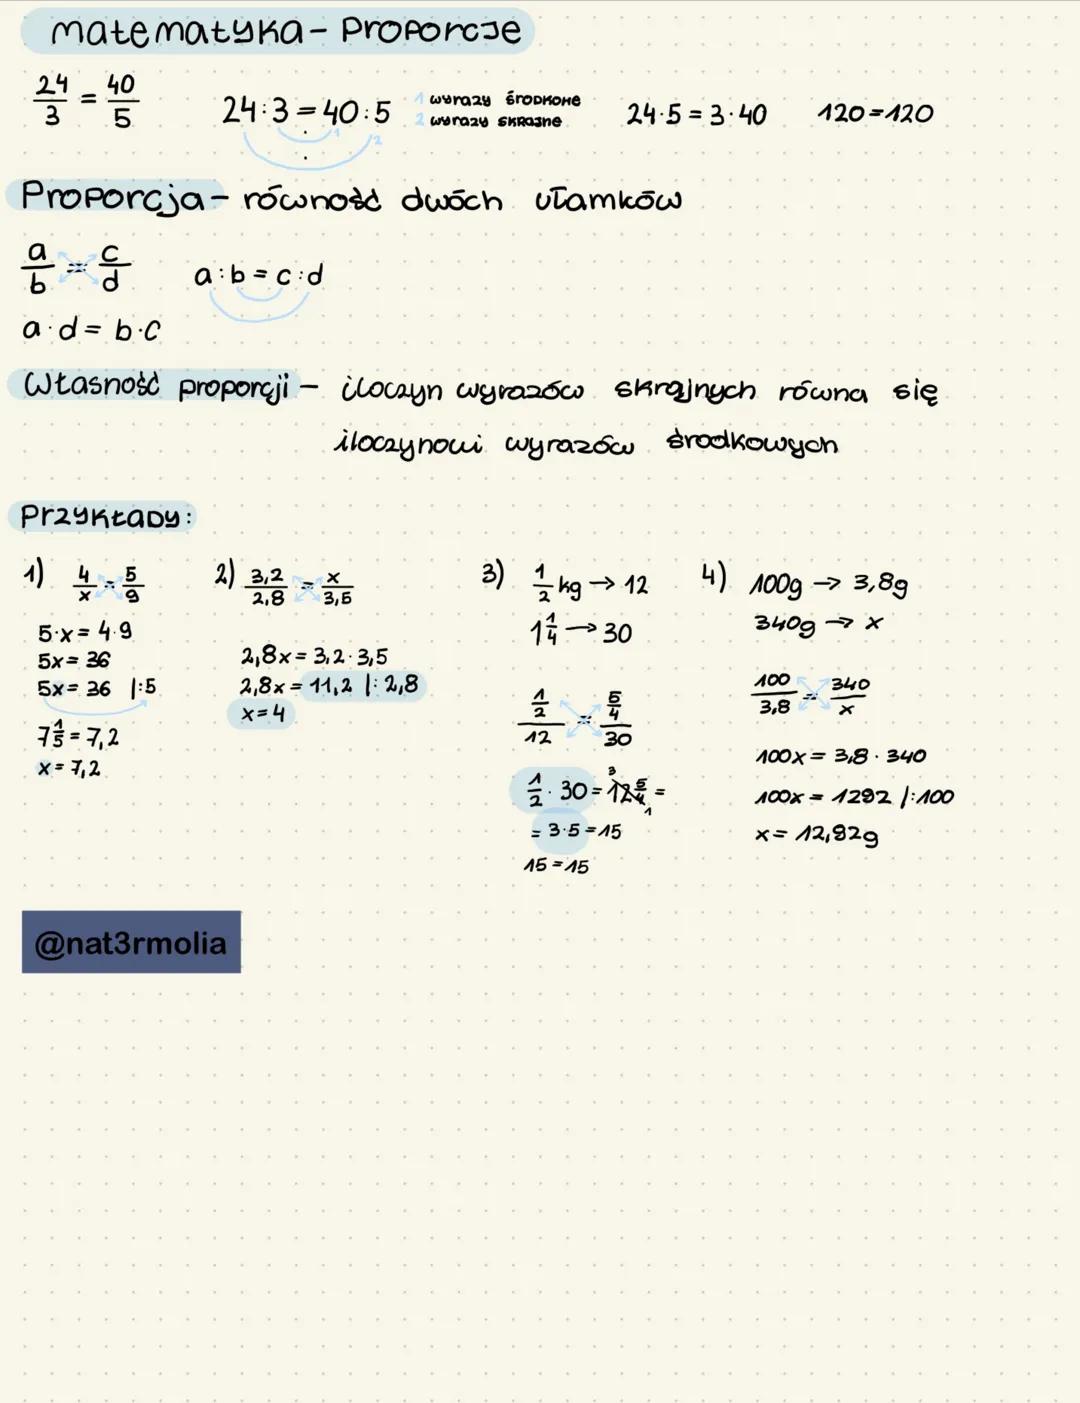 matematyka - Proporcje
24/3 = 40/5
24:3 = 40:5
1 wyrazy środkowe
2 wyrazy skrajne
1
2
24·5 = 3·40
120=120
Proporcja - równość dwóch ułamków
a/b = c/d
a:b = c:d
a·d = b·c
Własność proporcji - iloczyn wyrazów skrajnych równa się
iloczynowi wyrazów środkowych
Przykłady:
1) 4/x = 5/9
5·x = 4·9
5x = 36
5x = 36 |:5
7 1/5 = 7,2
x = 7,2
2) 3,2/2,8 = x/3,5
2,8x = 3,2·3,5
2,8x = 11,2 |: 2,8
x=4
3) 1/2 kg → 12
1 1/4 → 30
1/2/12 = 5/4/30
1/2 · 30 = 12 3 5/4 1 =
= 3·5 = 15
15 = 15
4) 100g → 3,8g
340g → x
100/3,8 = 340/x
100x = 3,8 · 340
100x = 1292 |:100
x = 12,92g
@nat3rmolia